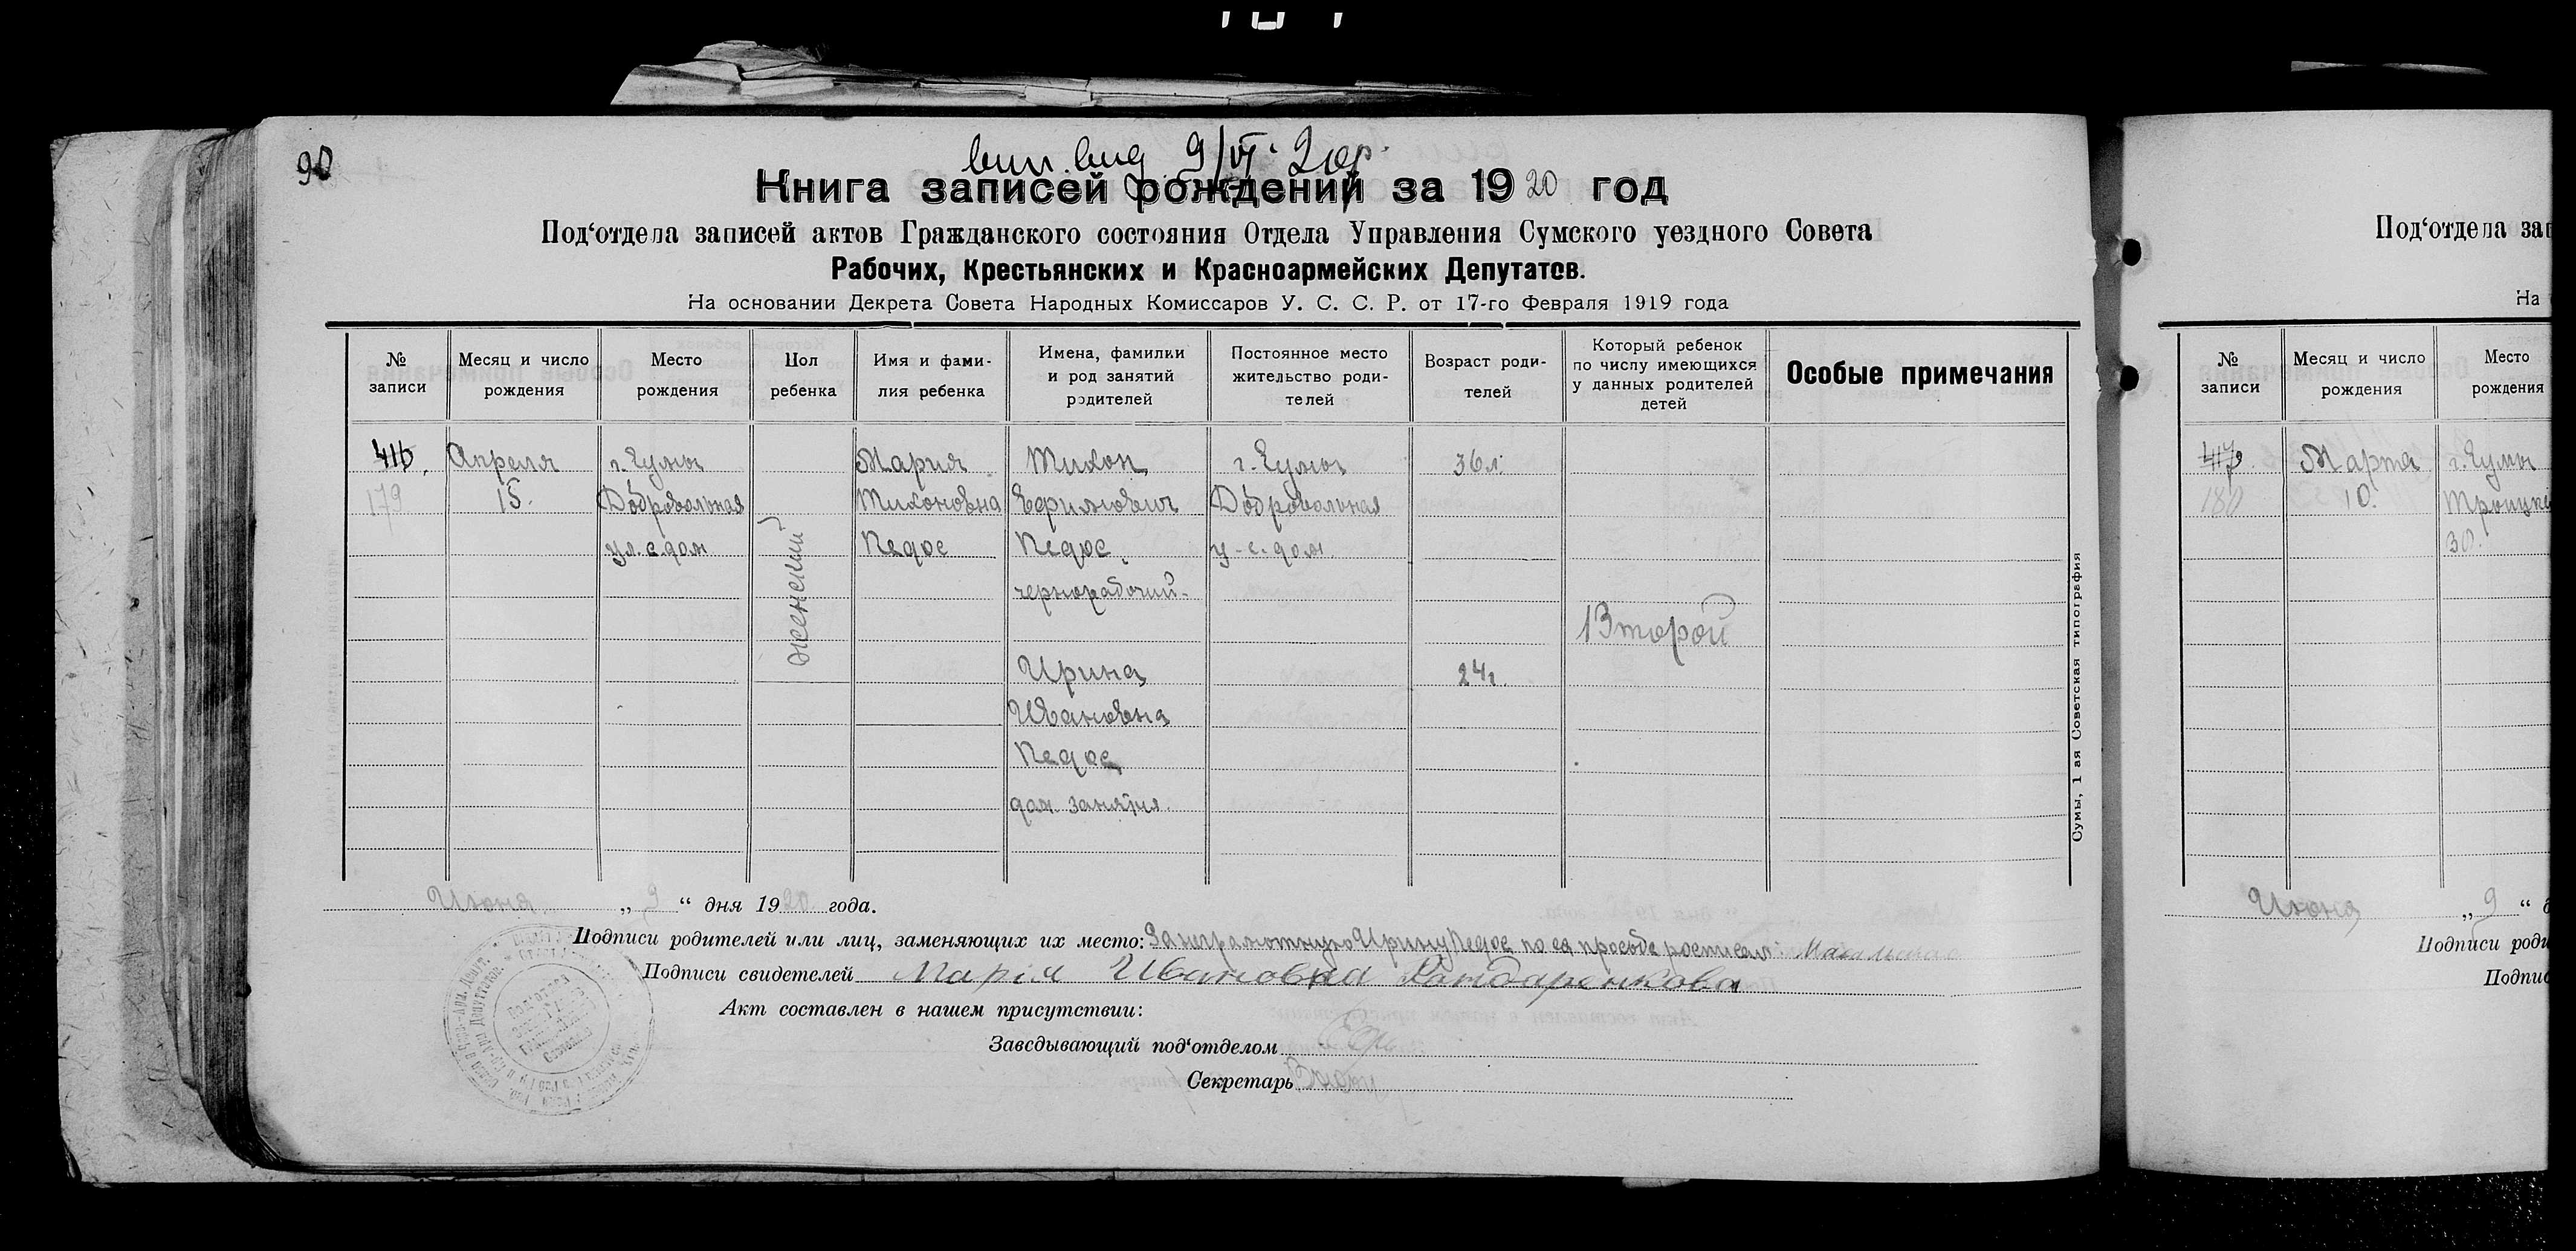 90
вып. выд. 9/VI 20г.
Книга записей рождений за 1920 год
Под‘отдела записей актов Гражданского состояния Отдела Управления Сумского уездного Совета
Рабочих, Крестьянских и Красноармейских Депутатов.
На основании Декрета Совета Народных Комиссаров У. С. С. Р. от 17-го Февраля 1919 года
№ записи
Месяц и число рождения
Место рождения
Пол ребенка
Имя и фамилия ребенка
Имена, фамилии и род занятий родителей
Постоянное место жительство родителей
Возраст родителей
Который ребенок по числу имеющихся у данных родителей детей
Особые примечания
416. Апреля г. Сумы Мария Тихон г. Сумы 36 л.
179 15. Добровольная Тихоновна Ефимович Добровольная
ул. с. дом Педос Педос у-с. дом
женский
чернорабочий
Второй
Ирина 24 г.
Ивановна
Педос
дом. занятия.
Июня „ 9 “ дня 1920 года.
Подписи родителей или лиц, заменяющих их место: За неграмотную Ирину Педос по ея просьбе росписал:
Подписи свидетелей Марія Ивановна Бондаренкова
Акт составлен в нашем присутствии:
Заведывающий под‘отделом
Секретарь
Сумы, 1 ая Советская типография
Под‘отдела зап
На
№ записи
Месяц и число рождения
Место рождения
417. Марта г. Сумы
180 10. Троицк
30.
Июня „ 9 “ д
Подписи роди
Подпис